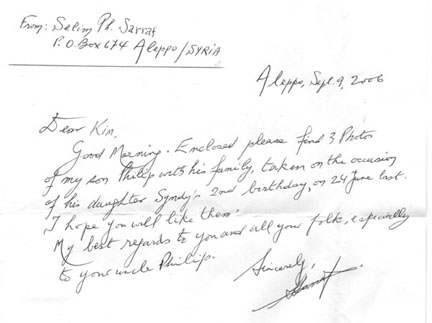 From: Selim Ph. Sarraf
P.O.Box 674 Aleppo/SYRIA
Aleppo, Sept. 9, 2006
Dear Kim,
Good Morning. Enclosed please find 3 Photos
of my son Philip with his family, taken on the occasion
of his daughter Syndy's 2nd birthday, on 24 June last.
I hope you will like them.
My best regards to you and all your folk, especially
to your uncle Phillip.
Sincerely,